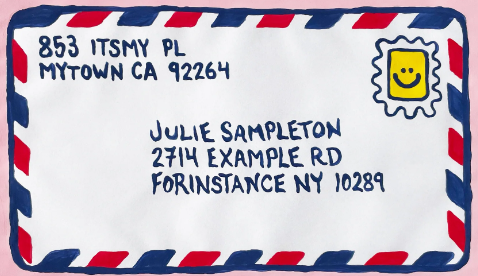 853 ITSMY PL
MYTOWN CA 92264
JULIE SAMPLETON
2714 EXAMPLE RD
FORINSTANCE NY 10289